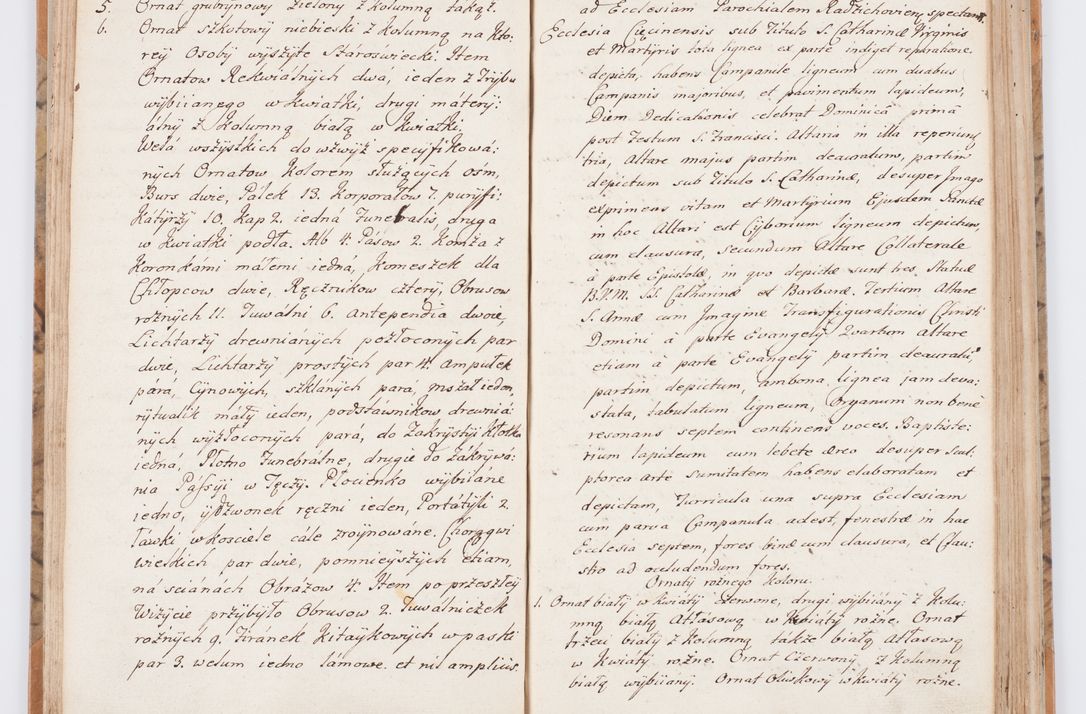 5. Ornat grubrynowy zielony z kolumną takąż.
6. Ornat szkotowy niebieski z kolumną na kto:
rey Osoby wyszyte Staroswiecki. Item
Ornatow Rekwialnych dwa, ieden z Trypu
wybiianego w kwiatki, drugi matery:
alny z kolumną białą w kwiatki.
Wela wszyskich do wzwyż specyfikowa:
nych Ornatow kolorem służących osm,
Burs dwie, Palek 13. Korporałow 7. puryfi:
katyrzy 10. Kap 2. iedna funebralis, druga
w kwiatki podła. Alb 4. Pasow 2. Komża z
koronkami małemi iedna, komeszek dla
Chłopcow dwie, Ręcznikow cztery, Obrusow
rożnych 11. Tuwalni 6. antependia dwoie,
Lichtarzy drewnianych pozłoconych par
dwie, Lichtarzy prostych par 4. ampułek
para, Cynowych, szklanych para, mszał ieden,
rytualik mały ieden, podstawnikow drewnia:
nych wyzłoconych para, do Zakrystyi kłotka
iedna, Płotno funebralne, drugie do zakrywa:
nia Passyi w Tęczy. Płocienko wybiiane
iedno, dzwonek ręczni ieden, Portatyli 2.
Ławki w kosciele cale zroynowane. Chorągwi
wielkich par dwie, pomnieyszych etiam,
na scianach Obrazow 4. Item po przeszłey
Wizycie przybyło Obrusow 2. Tuwalniczek
rożnych 9. Firanek kitaykowych w paski
par 3. welum iedno lamowe. et nil amplius.
ad Ecclesiam Parochialem Radzichoviem spectant.
Ecclesia Cięcinensis sub Titulo S. Catharinæ Virginis
et Martyris tota lignea ex parte indiget reparatione.
depicta, habens Campanile ligneum cum duabus
Campanis majoribus, et pavimentum lapideum,
Diem Dedicationis celebrat Dominica prima
post Festum S. Francisci. Altaria in illa reperiunt
tria, Altare majus partim deauratum, partim
depictum sub Titulo S. Catharinæ, desuper Imago
exprimens vitam et Martyrium Ejusdem Sanctæ
in hoc Altari est Cyborium ligneum depictum,
cum clausura, secundum Altare Collaterale
à parte Epistolæ, in qvo depictæ sunt tres Statuæ
B.V.M. SS. Catharinæ et Barbaræ. Tertium Altare
S. Annæ cum Imagine Transfigurationis Christi
Domini à parte Evangely Qvartum Altare
etiam à parte Evangely partim deauratu
partim depictum, ambona lignea jam deva:
stata, tabulatum ligneum, Organum non benè
resonans septem continens voces. Baptiste:
rium lapideum cum lebete æreo desuper Scul:
ptorea arte Sumitatem habens elaboratam et
depictam, Turricula una supra Ecclesiam
cum parva Campanula adest, fenestræ in hac
Ecclesia septem, fores binæ cum clausura, et Clau:
stro ad occludendum fores.
Ornaty rożnego koloru.
1. Ornat biały w kwiaty czerwone, drugi wybiiany z kolu:
mną białą Atłasową w kwiaty rożne. Ornat
trzeci biały z kolumną także białą Atłasową
w kwiaty rożne. Ornat Czerwony z kolumną
białą wybiiany. Ornat Oliwkowy w kwiaty rożne.